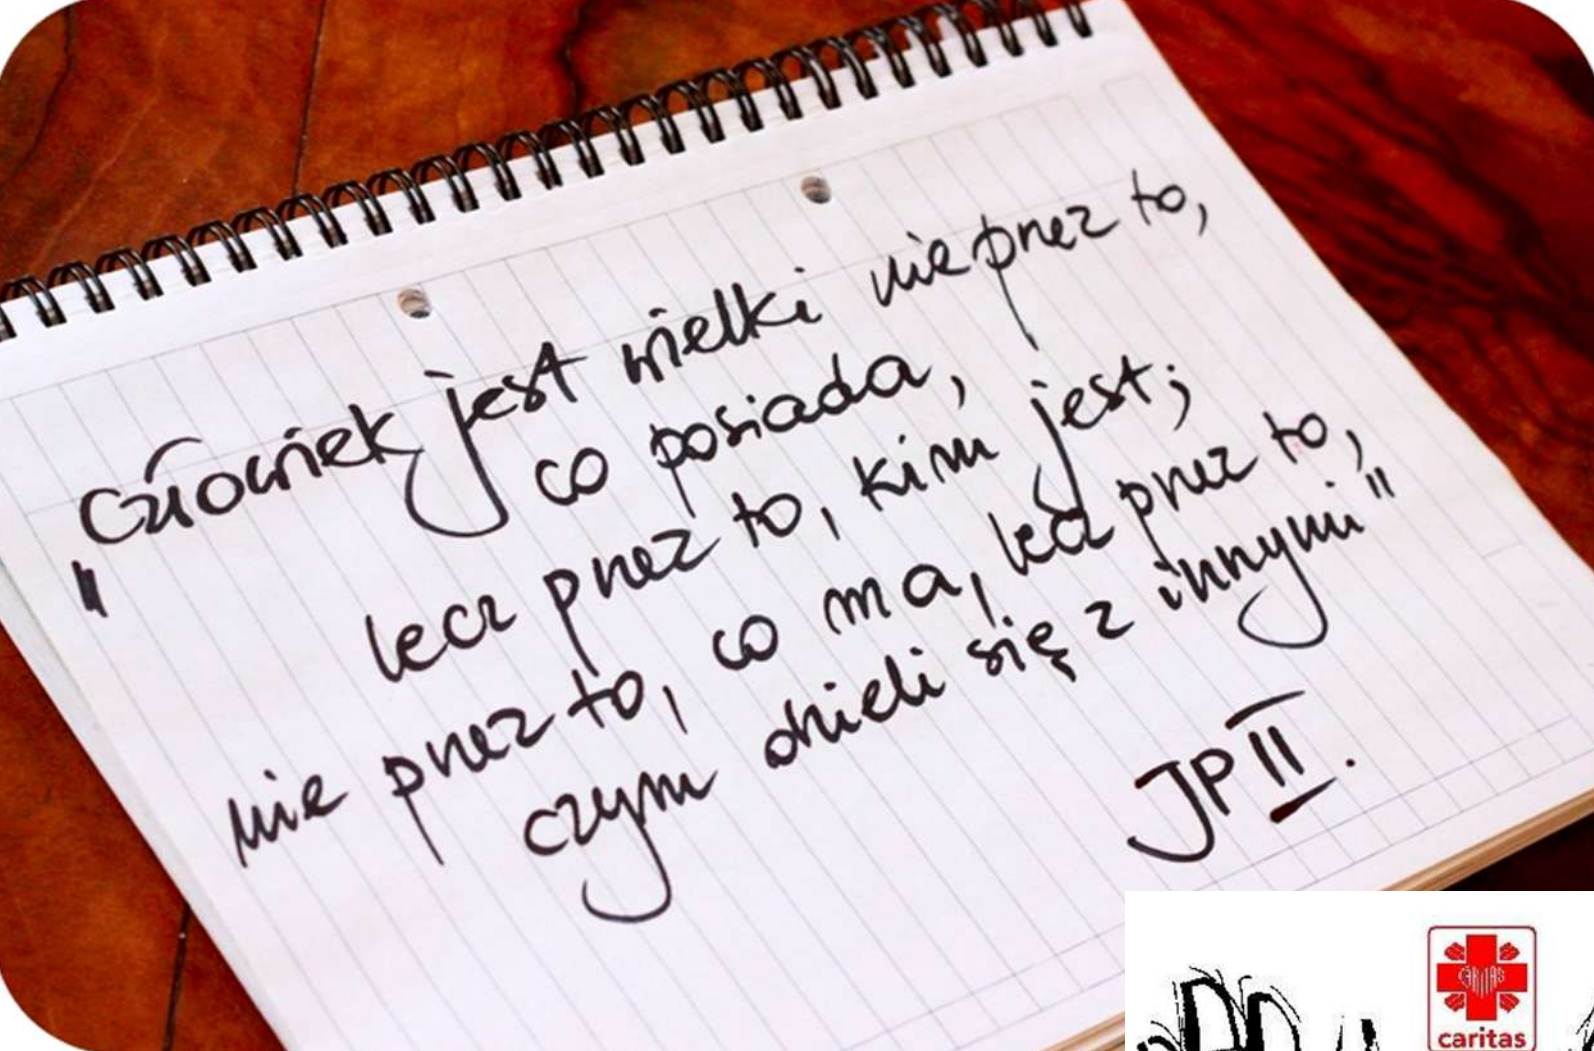 "Człowiek jest wielki nie przez to,
co posiada,
lecz przez to, kim jest;
nie przez to, co ma, lecz przez to,
czym dzieli się z innymi"
JP II.
CARITAS
caritas